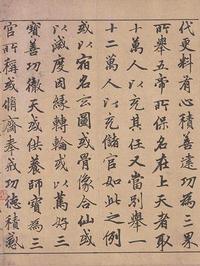 代更料有心積善建功為三界
所舉五帝所保名在上天者取
十萬人以充其任又當別舉一
十二萬人以充儲官如此之例
或以宿名玄圖或骨像合仙或
以滅度因緣轉輪或以萬好三
寶善功徹天或供養師寶為三
官所稱或脩齋奉戒功德積感